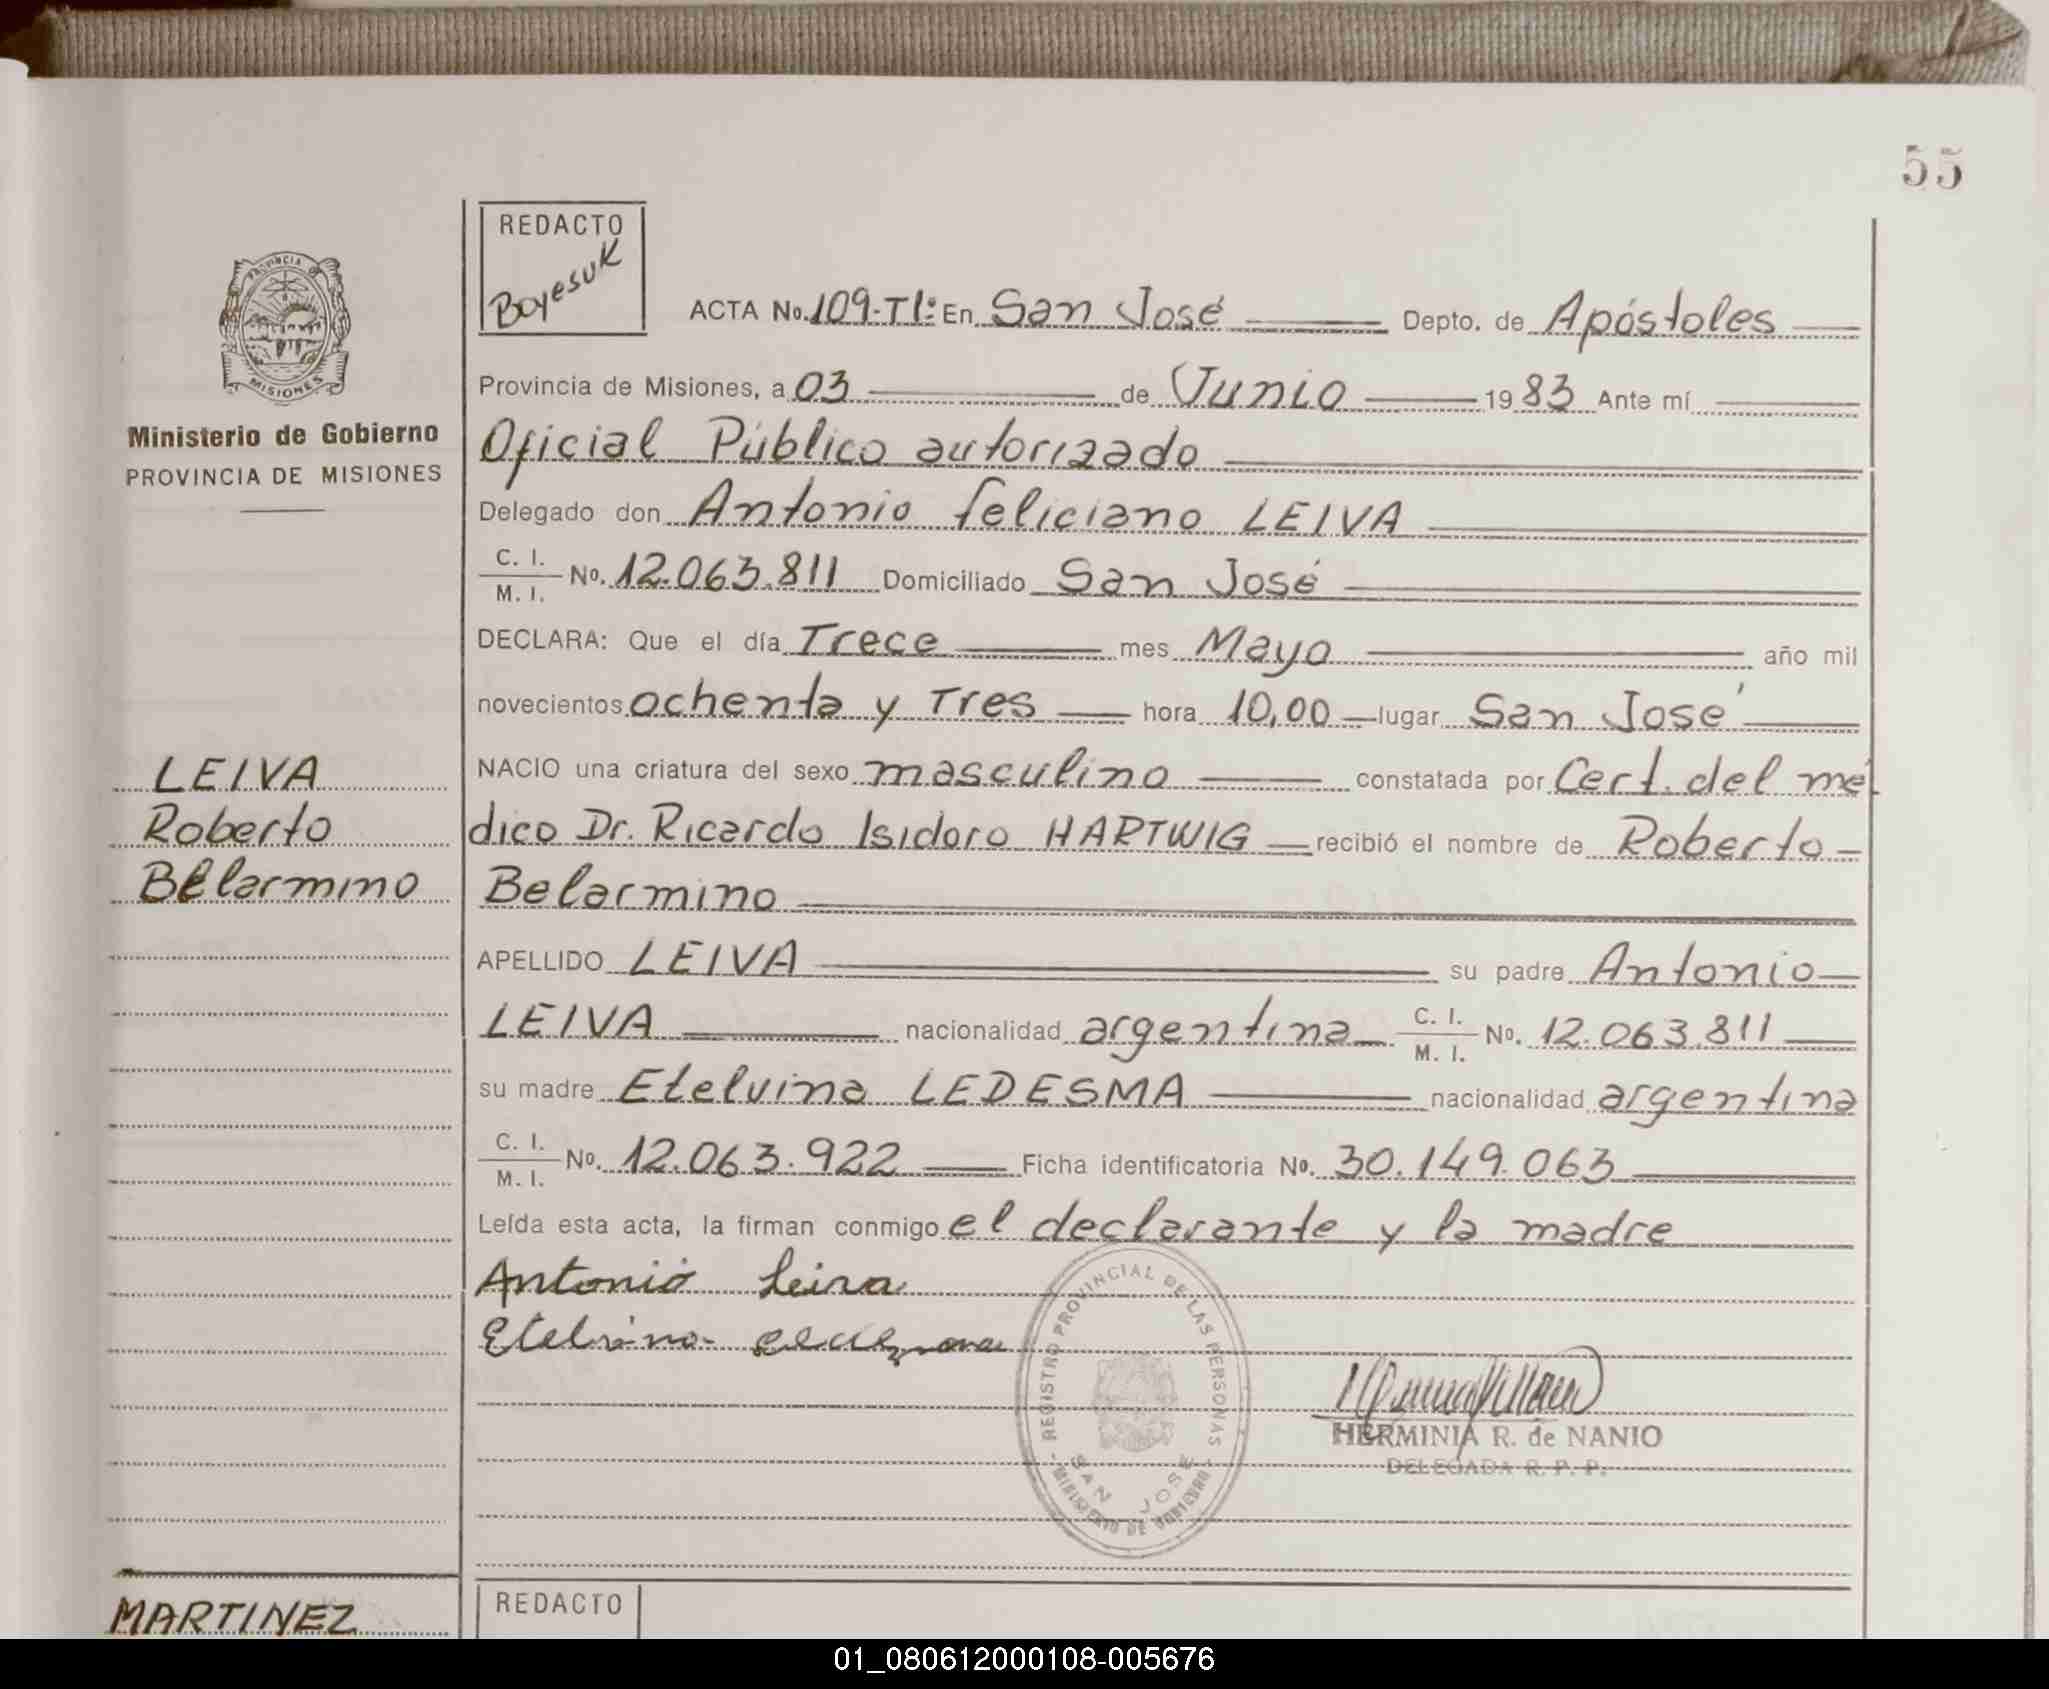 55
REDACTO
Boyesuk
ACTA No. 109-T1: En San José Depto. de Apóstoles
Provincia de Misiones, a 03 de Junio 1983 Ante mí
Ministerio de Gobierno
PROVINCIA DE MISIONES
PROVINCIA DE
MISIONES
Oficial Público autorizado
Delegado don Antonio feliciano LEIVA
C. I.
M. I. No. 12.063.811 Domiciliado San José
DECLARA: Que el día Trece mes Mayo año mil
novecientos ochenta y Tres hora 10,00 lugar San José
LEIVA
Roberto
Belarmino
NACIO una criatura del sexo masculino constatada por Cert. del mé
dico Dr. Ricardo Isidoro HARTWIG recibió el nombre de Roberto
Belarmino
APELLIDO LEIVA su padre Antonio
LEIVA nacionalidad argentina C. I.
M. I. No. 12.063.811
su madre Etelvina LEDESMA nacionalidad argentina
C. I.
M. I. No. 12.063.922 Ficha identificatoria No. 30.149.063
Leída esta acta, la firman conmigo el declarante y la madre
Antonio Leiva
Etelvina
REGISTRO PROVINCIAL DE LAS PERSONAS
SAN JOSE
MINISTERIO DE GOBIERNO
HERMINIA R. de NANIO
DELEGADA R. P. P.
MARTINEZ
REDACTO
01_080612000108-005676